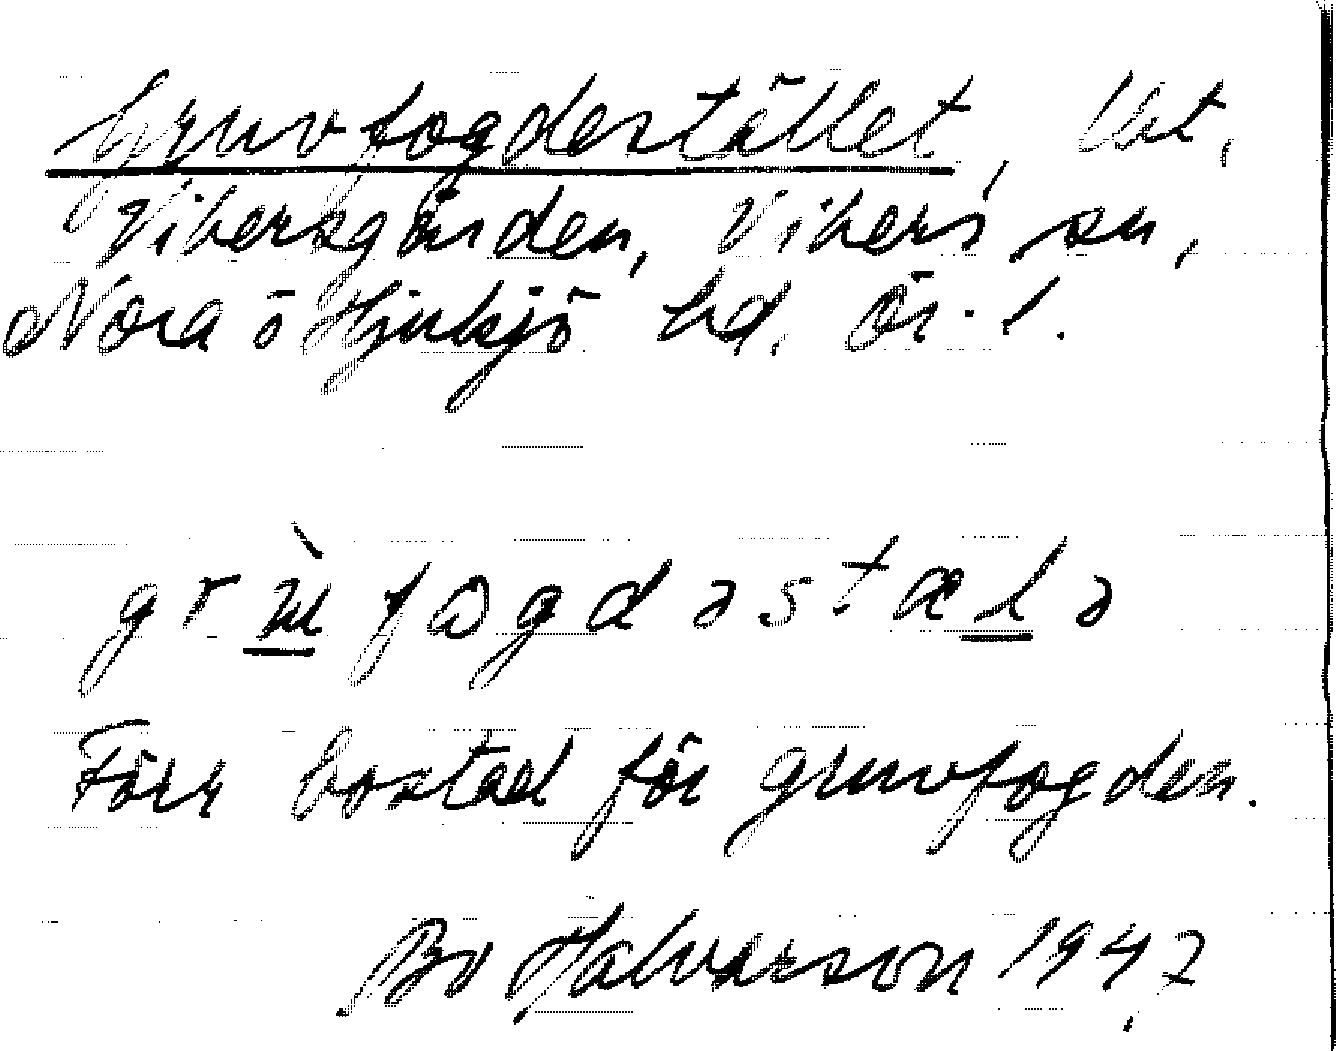 Gruvfogdestället,
Vikersgården, Vikers sn,
Nora o Hjulsjö hd. Ör. l.
grùfωgdəstælə
Förr bostad för gruvfogden.
Bo Halvarson 1947